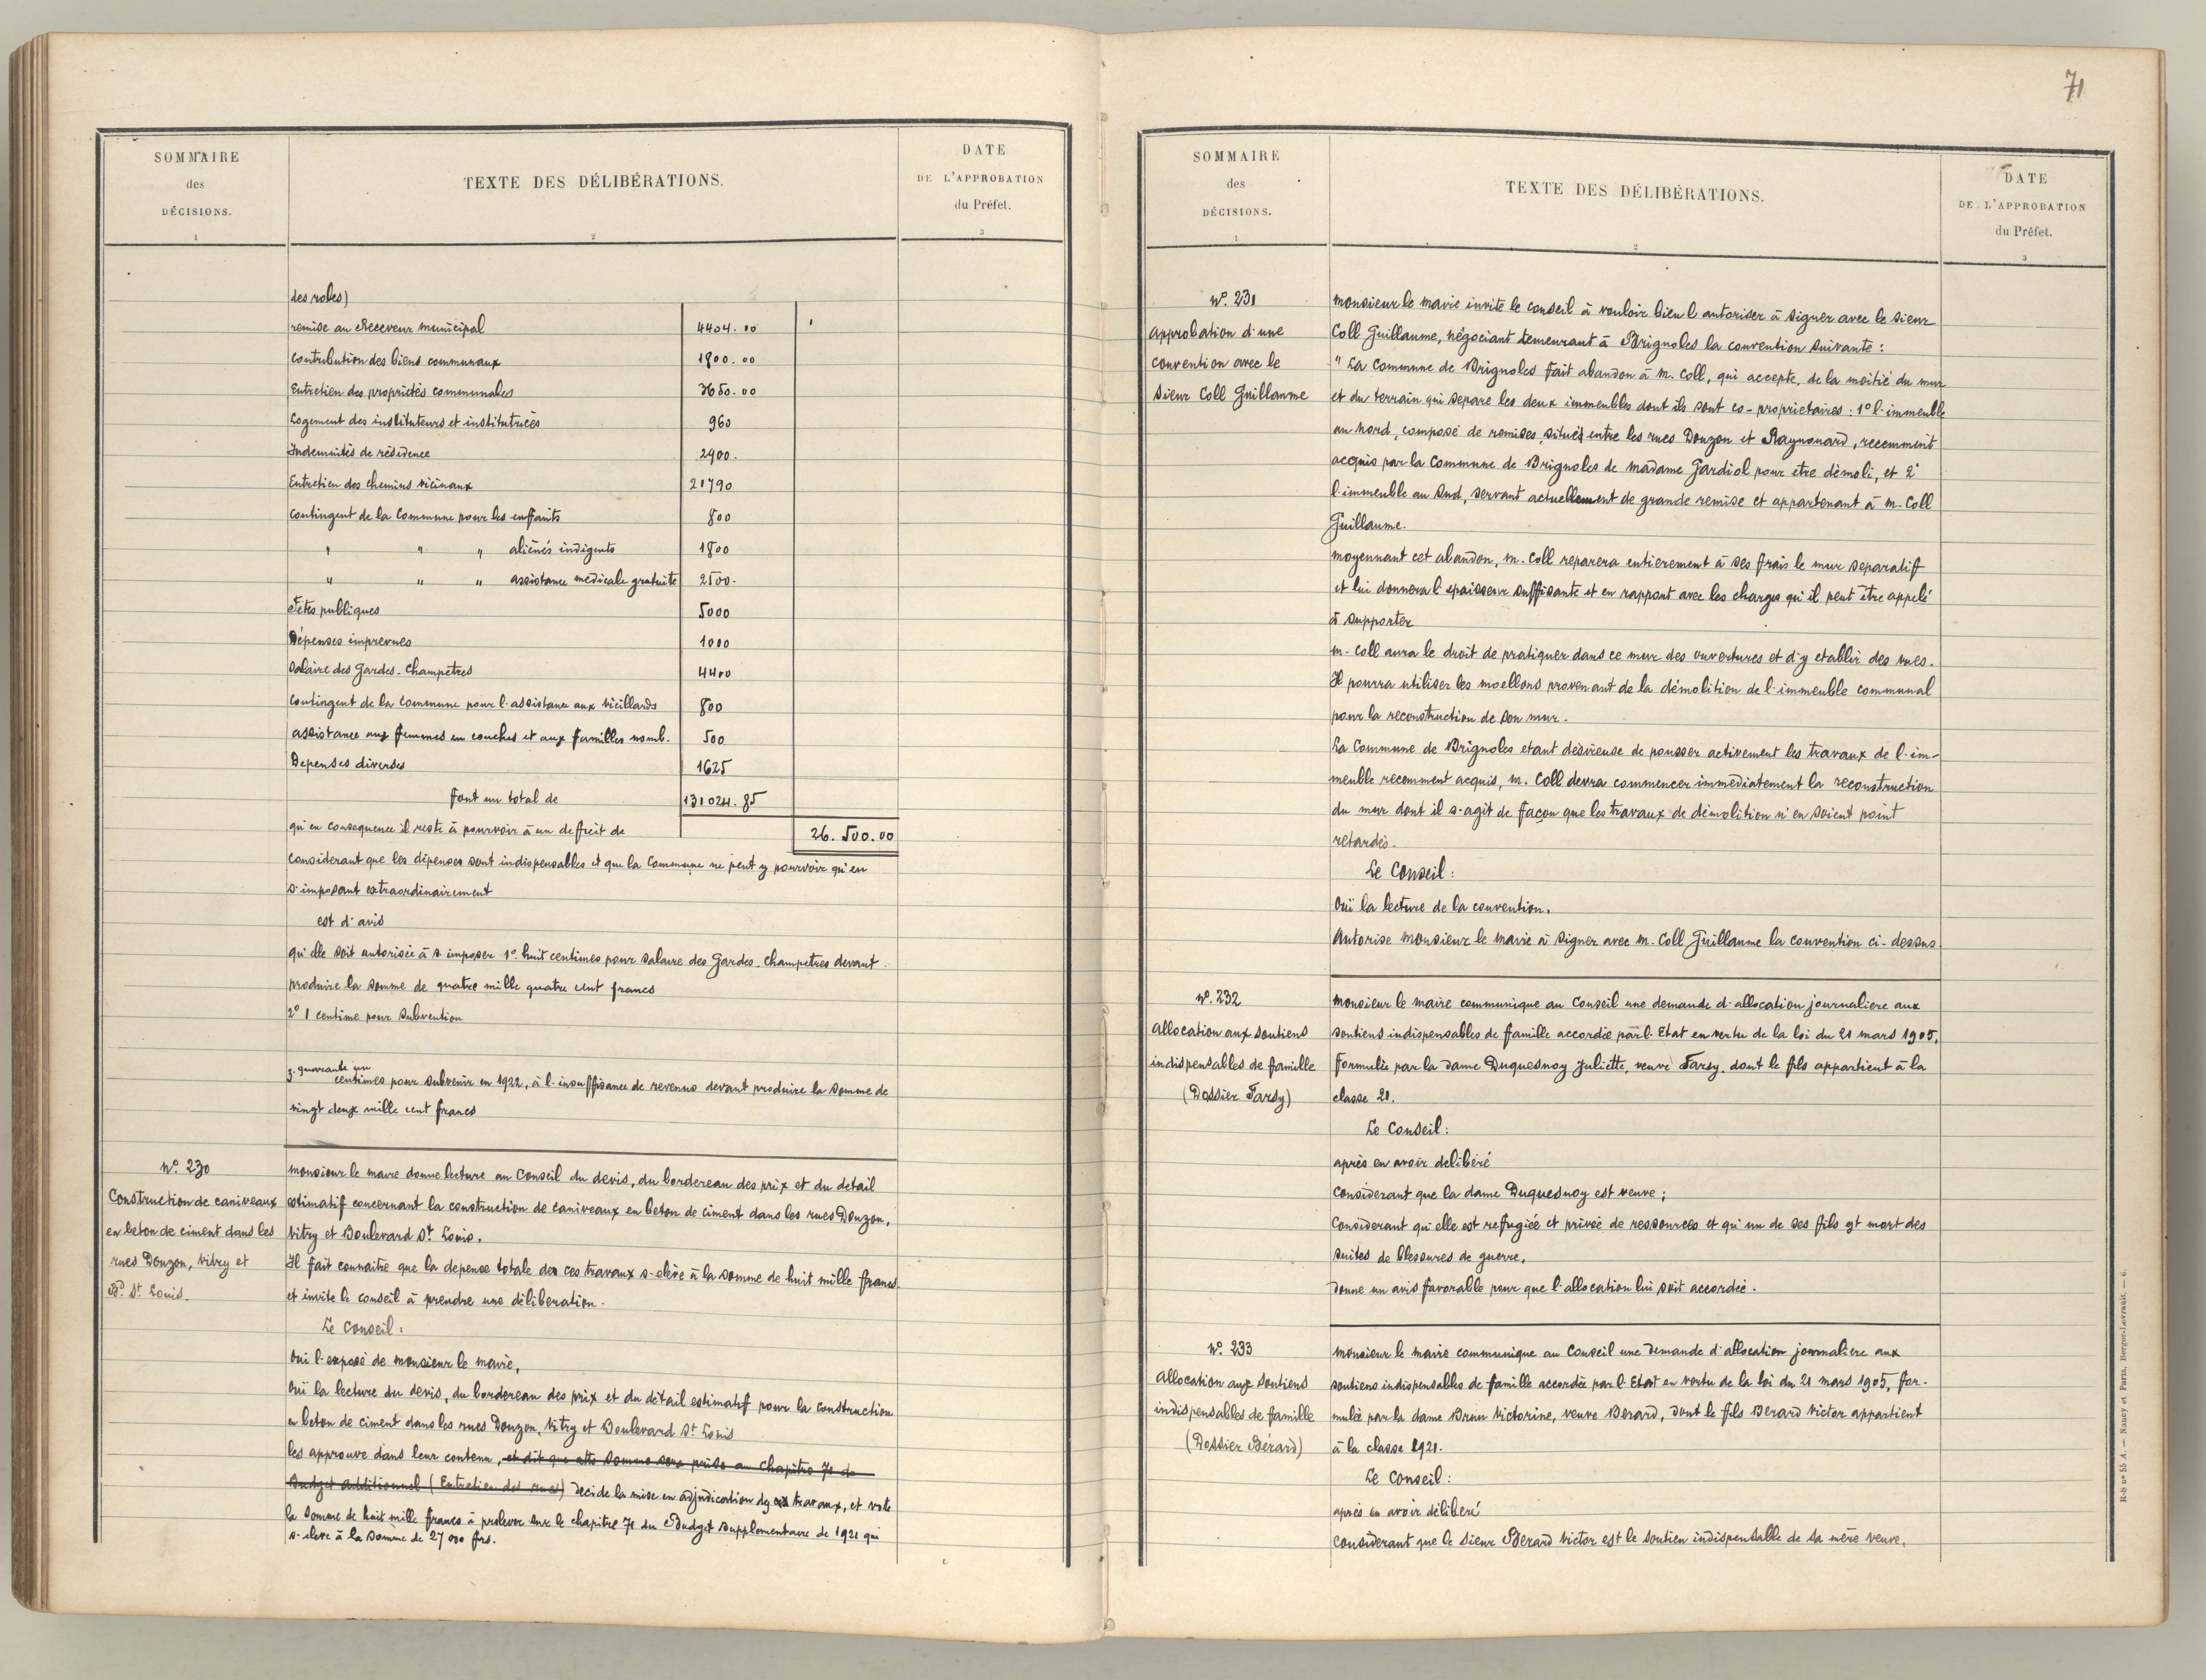 SOMMAIRE
des
DÉCISIONS.
1
TEXTE DES DÉLIBÉRATIONS.
2
DATE
DE L'APPROBATION
du Préfet.
3
des roles)
remise au Receveur municipal 4404.00
contribution des biens communaux 1800.00
Entretien des propriétés communales 3650.00
Logement des instituteurs et institutrices 960
Indemnités de résidence 2900.
Entretien des chemins vicinaux 21790
contingent de la Commune pour les enffants 800
" " " aliénés indigents 1800
" " " assistance médicale gratuite 2500.
Fêtes publiques 5000
Dépenses imprevues 1000
Salaire des Gardes-Champetres 4400
contingent de la Commune pour l'assistance aux vieillards 800
assistance aux femmes en couches et aux familles nomb. 500
Depenses diverses 1625
font un total de 131024.85
qu'en consequence il reste à pourvoir à un defficit de 26.500.00
considerant que les dépenses sont indispensables et que la Commune ne peut y pourvoir qu'en
s'imposant extraordinairement
est d'avis
qu'elle soit autorisée à s'imposer 1° huit centimes pour salaire des Gardes-Champetres devant
produire la somme de quatre mille quatre cent francs
2° 1 centime pour subvention
3. quarante un
centimes pour subvenir en 1922, à l'insuffisance de revenus devant produire la somme de
vingt deux mille cent francs
N° 230
Construction de caniveaux
en beton de ciment dans les
rues Douzon, Vitry et
Bd St Louis.
monsieur le maire donne lecture au Conseil du devis, du bordereau des prix et du detail
estimatif concernant la construction de caniveaux en beton de ciment dans les rues Douzon,
Vitry et Boulevard St Louis.
Il fait connaitre que la depense totale de ces travaux s'elève à la somme de huit mille francs
et invite le conseil à prendre une déliberation.
Le conseil:
Oui l'exposé de monsieur le maire,
Oui la lecture du devis, du bordereau des prix et du détail estimatif pour la construction
en beton de ciment dans les rues Douzon, Vitry et Boulevard St Louis
les approuve dans leur contenu, et dit que cette somme sera prise au Chapitre 71 du
Budget additionnel (Entretien des rues) decide la mise en adjudication des travaux, et vote
la somme de huit mille francs à prelever sur le chapitre 71 du Budget supplementaire de 1921 qui
s'eleve à la somme de 27 000 frs.
71
SOMMAIRE
des
DÉCISIONS.
1
TEXTE DES DÉLIBÉRATIONS.
2
DATE
DE L'APPROBATION
du Préfet.
3
N° 231
approbation d'une
convention avec le
sieur Coll Guillaume
monsieur le maire invite le conseil à vouloir bien l'autoriser à signer avec le sieur
Coll Guillaume, négociant demeurant à Brignoles la convention suivante:
" La Commune de Brignoles fait abandon à m. Coll, qui accepte, de la moitié du mur
et du terrain qui separe les deux immeubles dont ils sont co-proprietaires: 1° l'immeuble
au Nord, composé de remises, situés entre les rues Douzon et Raynouard, recemment
acquis par la Commune de Brignoles de madame Gardiol pour etre démoli, et 2°
l'immeuble au Sud, servant actuellement de grande remise et appartenant à m. Coll
Guillaume.
moyennant cet abandon, m. Coll reparera entierement à ses frais le mur separatif
et lui donnera l'epaisseur suffisante et en rapport avec les charges qu'il peut être appelé
à supporter
m. Coll aura le droit de pratiquer dans ce mur des ouvertures et d'y etablir des vues.
Il pourra utiliser les moellons provenant de la démolition de l'immeuble communal
pour la reconstruction de son mur.
La Commune de Brignoles etant désireuse de pousser activement les travaux de l'im-
meuble recemment acquis, m. Coll devra commencer immédiatement la reconstruction
du mur dont il s'agit de façon que les travaux de démolition n'en soient point
retardés.
Le Conseil:
Ouï la lecture de la convention.
Autorise monsieur le maire à signer avec m. Coll Guillaume la convention ci-dessus
N° 232
Allocation aux soutiens
indispensables de famille
(Dossier Farsy)
monsieur le maire communique au Conseil une demande d'allocation journaliere aux
soutiens indispensables de famille accordée par l'Etat en vertu de la loi du 21 mars 1905,
Formulée par la Dame Duquesnoy Juliette, veuve Farsy, dont le fils appartient à la
classe 21.
Le Conseil:
après en avoir delibéré
considerant que la dame Duquesnoy est veuve;
considerant qu'elle est refugiée et privée de ressources et qu'un de ses fils est mort des
suites de blessures de guerre,
donne un avis favorable pour que l'allocation lui soit accordée.
N° 233
Allocation aux soutiens
indispensables de famille
(Dossier Bérard)
monsieur le maire communique au Conseil une demande d'allocation journaliere aux
soutiens indispensables de famille accordée par l'Etat en vertu de la loi du 21 mars 1905, for-
mulée par la dame Brun Victorine, veuve Berard, dont le fils Berard Victor appartient
à la classe 1921.
Le Conseil:
après en avoir délibéré
considerant que le sieur Berard Victor est le soutien indispensable de sa mère veuve,
R-S n° 55 A. — Nancy et Paris, Berger-Levrault. — 6.